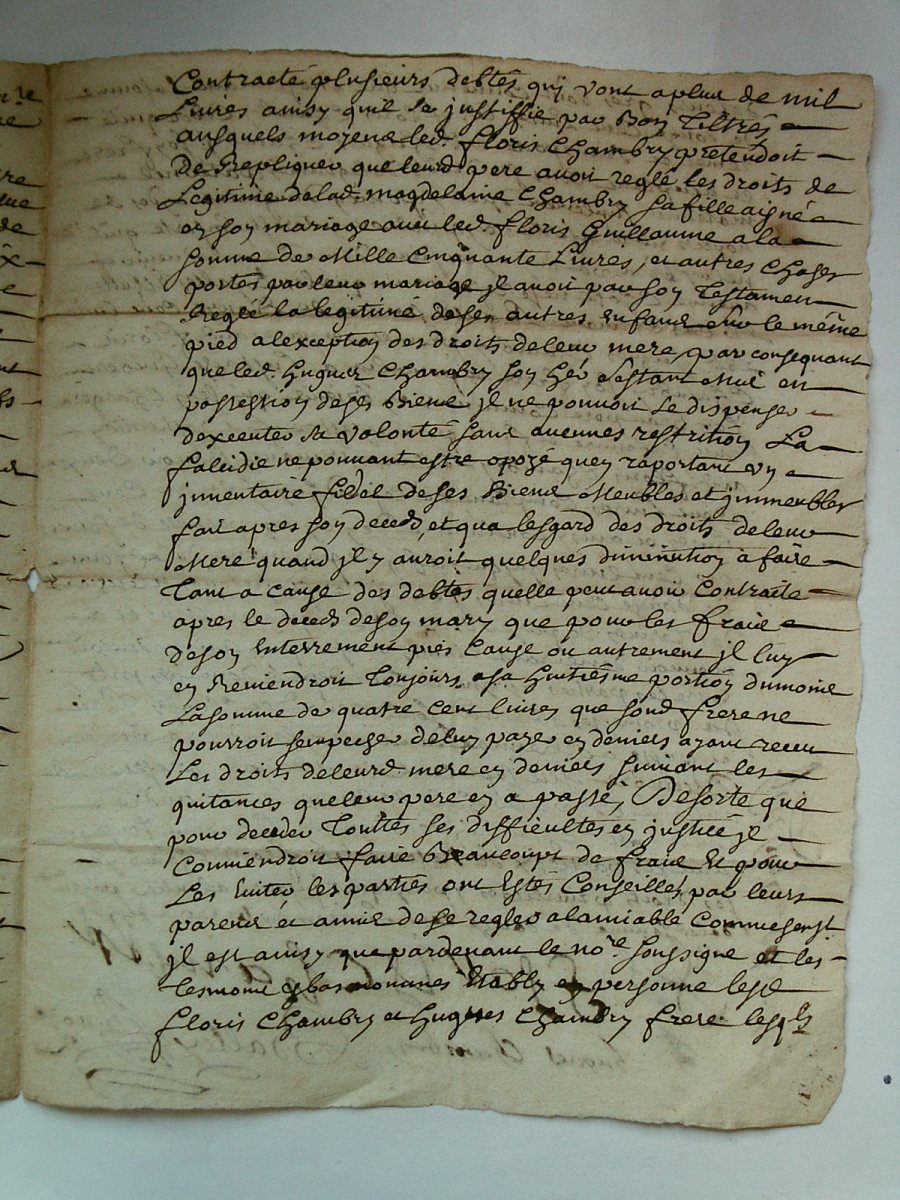 Contracté plusieurs debtes quy vont a plus de mil
Livres ainsy quil se justiffie par bon tiltres
ausquels moyens led. floris Chambry pretendoit
De Repliquer que leurd pere avoit reglé les droits de
Legitime delad. magdelaine Chambry sa fille aignée
en son mariage avec led. floris Guillaume a la
somme de Mille Cinquante Livres, et autres choses
portés par leur mariage il avoit par son Testament
Reglé la legitime de ses autres Enfans sur le même
pied a lexception des droits deleur mere, par consequant
que led. hugues Chambry son her estant Mis en
possession deses Biens il ne pouvoit se dispenser
dexecuter sa volonté sans aucunes restrition La
falcidie ne pouvant estre opozé quen raportant un
jnventaire fidel de ses Biens Meubles et jmmeubles
fait apres son deceds, et qua lesgard des droits deleur
Mere quand jl y auroit quelques diminution a faire
Tant a cause des debtes quelle peut avoir Contracté
apres le deceds deson mary que pour les fraix
deson Enterrement pies Cause ou autrement jl luy
en Reviendroit Toujours a sa huitiesme portion dumoins
La somme de quatre cent livres que sond. frere ne
pourroit sempecher deluy payer en deniers ayant receu
Les droits deleurd. mere en deniers suivant les
quitances queleur pere en a passé, Desorte que
pour decider Touttes ses diffficultes en justice jl
Conviendroit faire Beaucoupt de fraix Et pour
Les Eviter les parties ont Estés Conseillés par leurs
parens et amis de se regler alamiable Comme senst
jl est ainsy que pardevant le nore soussigné et les
tesmoins cy bas nommés Estably en personne lesd
floris Chambry et hugues Chambry frere lesqls